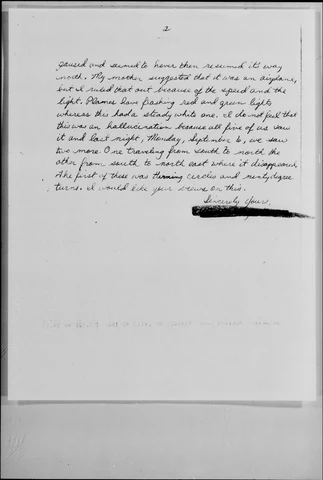 2
paused and seemed to hover then resumed it's way
north. My mother suggested that it was an airplane,
but I ruled that out because of the speed and the
light. Planes have flashing red and green lights
whereas this had a steady white one. I do not feel that
this was an hallucination because all five of us saw
it and last night, Monday, September 6, we saw
two more. One traveling from south to north the
other from south to north east where it disappeared.
The first of these was turning circles and ninty degree
turns. I would like your views on this.
Sincerely Yours,